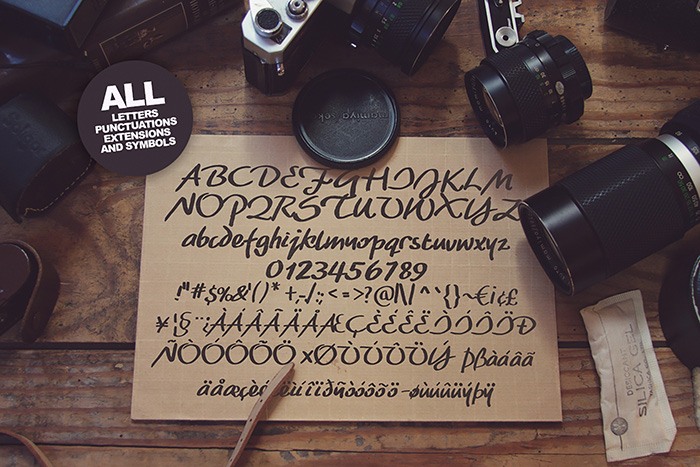 ALL
LETTERS
PUNCTUATIONS
EXTENSIONS
AND SYMBOLS
mamiya sekor
ABCDEFGHIJKLM
NOPQRSTUVWXYZ
abcdefghijklmnopqrstuvwxyz
0123456789
!"#$%&'()*+,-/:;<=>?@[\]^`{}~€¡¢£
¥¦§¨¨¡ÀÁÂÃÄÅÆÇÈÉÊËÌÍÎÏÐ
ÑÒÓÔÕÖxØÙÚÛÜÝ þßàáâã
äåæçèéêëìíîïðñòóôõö-øùúûüýþÿ
DESICCANT
SILICA GEL